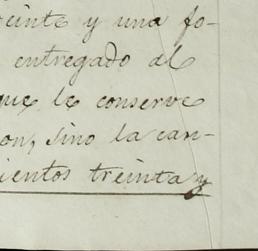 veinte y una fo-
entregado al
que le conserve
on, sino la can-
ientos treinta y